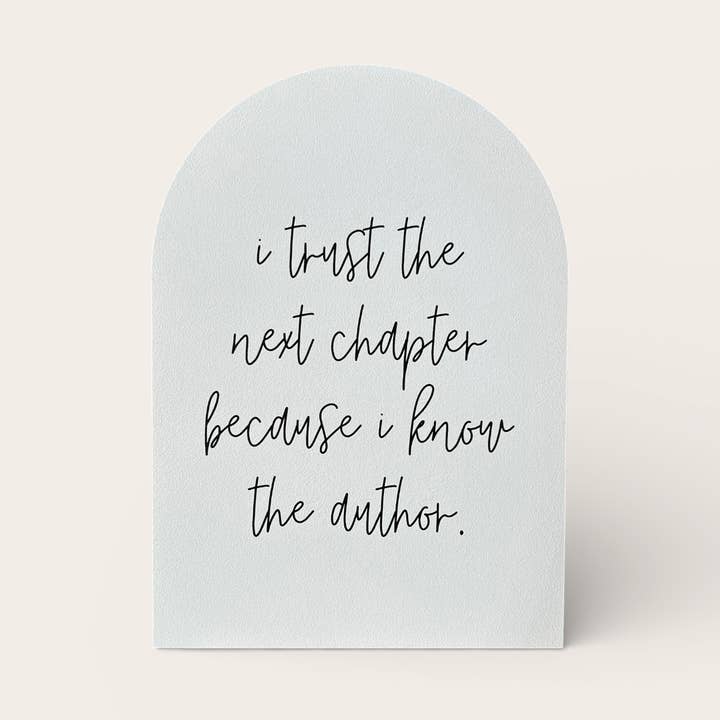 i trust the
next chapter
because i know
the author.